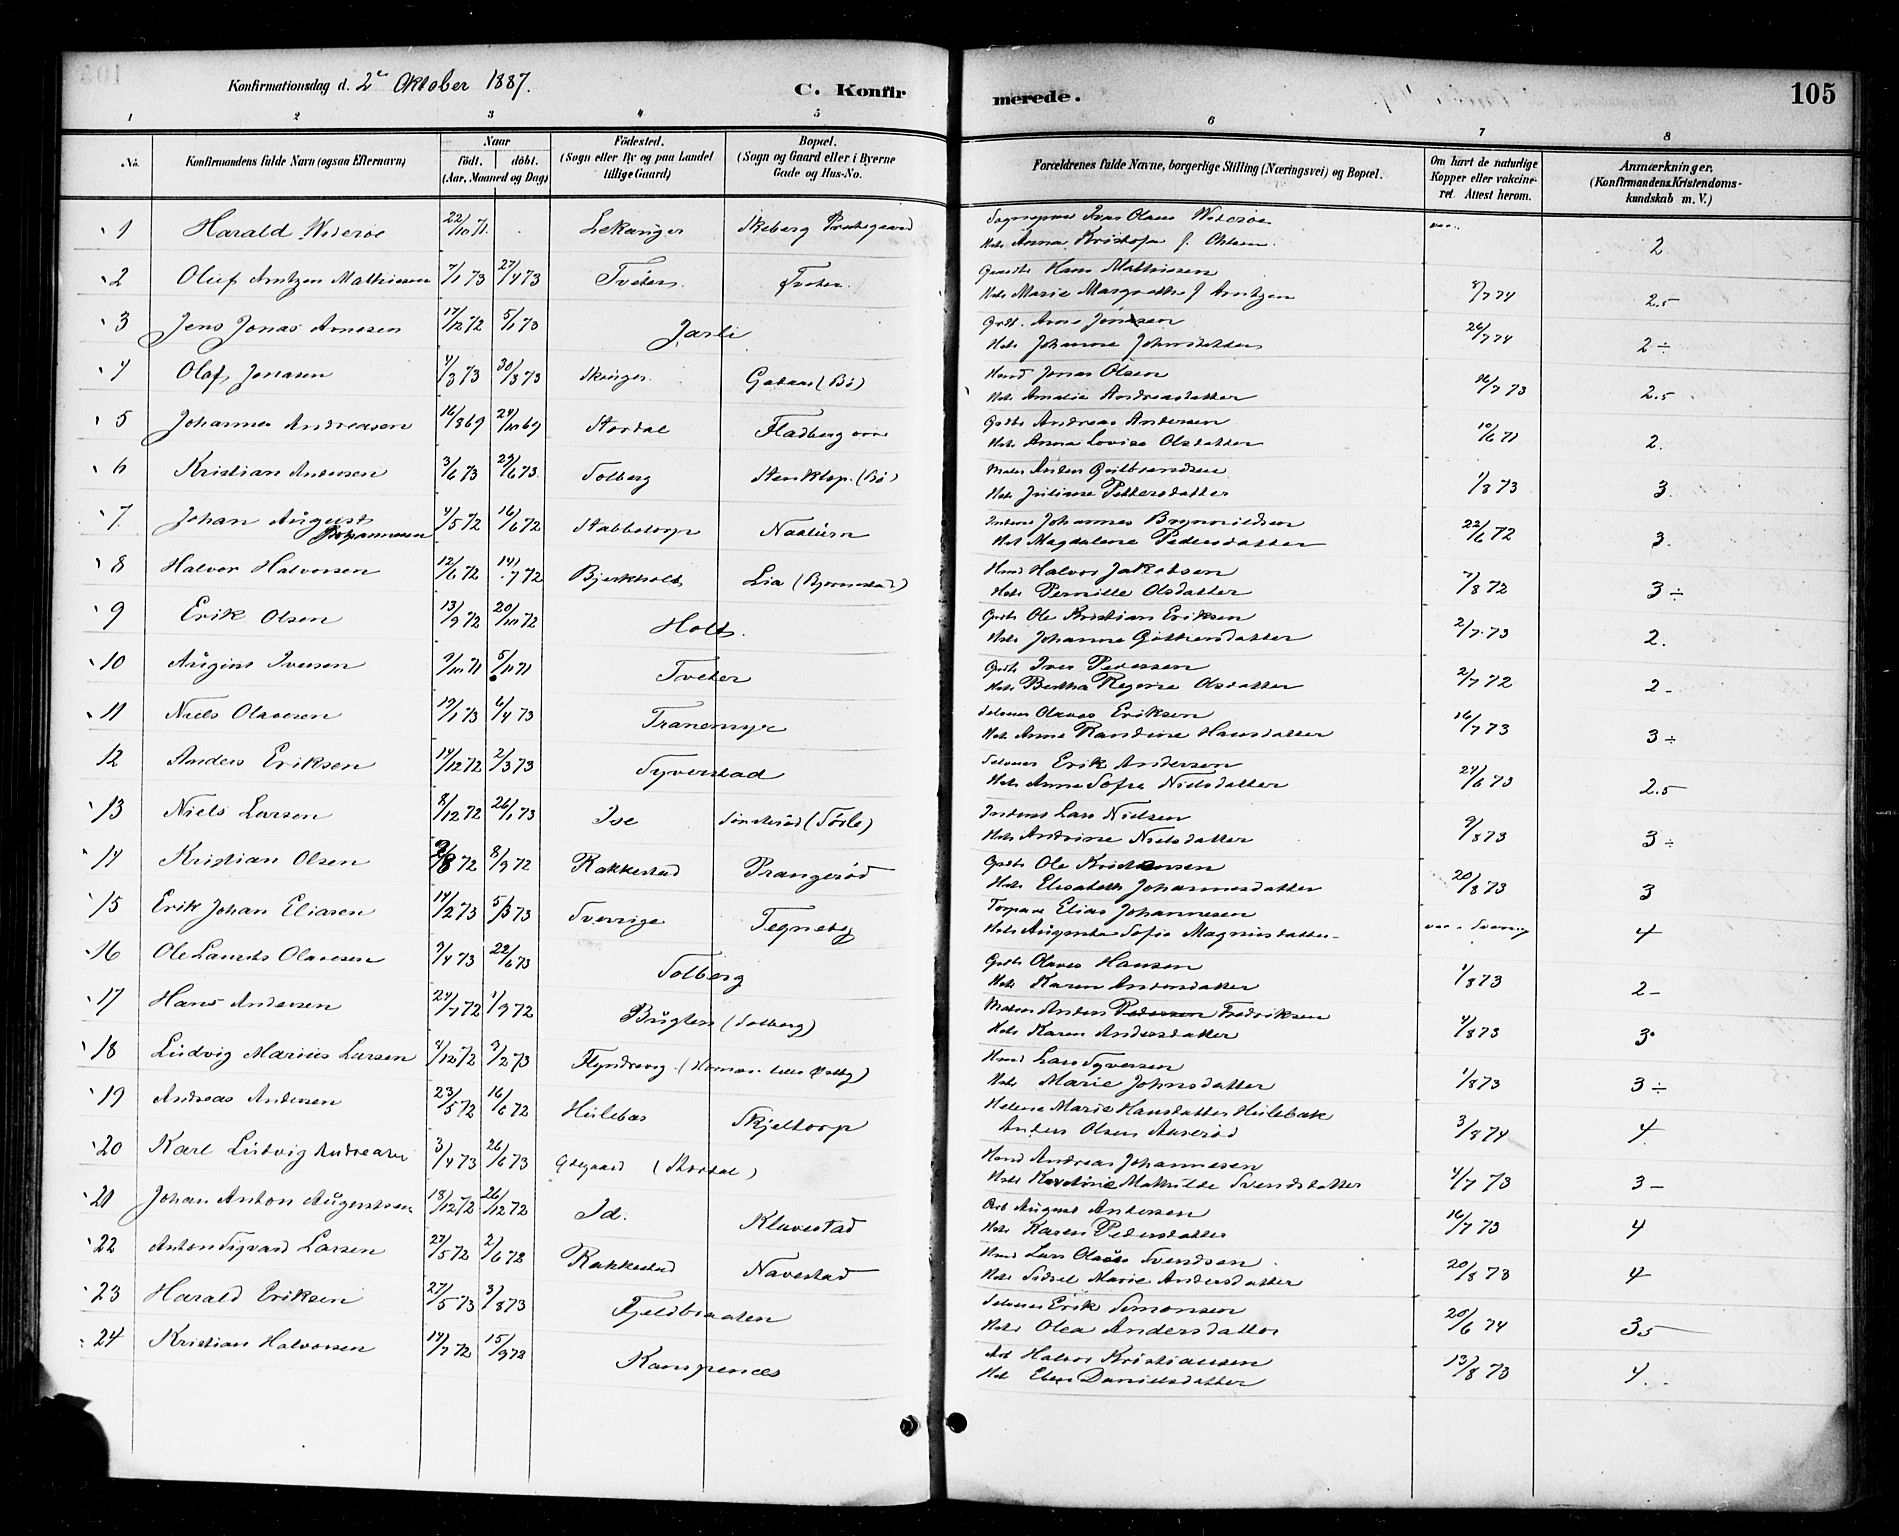 Konfirmationsdag d. 2 Oktober 1887. C. Konfirmerede. 105
1 2 3 4 5 6 7 8
No. Konfirmandens fulde Navn (ogsaa Efternavn) Naar födt. döbt. (Aar, Maaned og Dag) Födested. (Sogn eller By og paa Landet tillige Gaard) Bopæl. (Sogn og Gaard eller i Byerne Gade og Hus-No. Forældrenes fulde Navne, borgerlige Stilling (Næringsvei) og Bopæl. Om havt de naturlige Kopper eller vakcineret. Attest herom. Anmærkninger. (Konfirmandens Kristendomskundskab m. V.)
1 Harald Wideröe 22/10 71 Lekanger Skeberg Præstegaard Sognepræst Olsen Wideröe
Anna Kristofa f. Ohlsen 2
2 Oluf Arntzen Mathiesen 7/1 73 27/4 73 Tveter Tveter Hans Mathiesen
Marie Margrethe f Arntzen 8/7 74 2.5
3 Jens Jonas Arnesen 17/12 72 5/1 73 Jarli Arne Jensen
Johanne Johnsdatter 26/7 74 2 ÷
4 Olaf Jonasen 4/3 73 30/3 73 (Bö) Jonas Olsen
Amalie Andreasdatter 16/7 73 2.5
5 Johannes Andreasen 16/8 69 24/10 69 Stordal Fladberg Andreas Andersen
Anna Lovise Olsdatter 10/6 71 2.
6 Kristian Andersen 3/6 73 29/6 73 Solberg (Bö) Anders Gulbrandsen
Juliane Pettersdatter 1/8 73 3.
7 Johan August
Johannesen 4/5 72 16/6 72 Stabbetorp Johannes Brynnildsen
Magdalene Pedersdatter 22/6 72 3.
8 Halvor Halvorsen 12/6 72 14/7 72 Bjerkholt Lia (Bjørnestad) Halvor Jakobsen
Pernille Olsdatter 7/8 72 3 ÷
9 Erik Olsen 13/9 72 20/10 72 Holt. Ole Kristian Eriksen
Johanne 2/7 73 2.
10 August Iversen 9/10 71 5/11 71 Tveter Iver Pedersen
Bertha Regine Olsdatter 2/7 72 2 -
11 Niels Olavesen 19/1 73 6/4 73 Tranemyr Olaves Eriksen
Anne Randine Hansdatter 16/7 73 3 ÷
12 Anders Eriksen 14/12 72 2/3 73 Syverstad Erik Andersen
Anne Sofie Nielsdatter 24/6 73 2.5
13 Niels Larsen 8/12 72 26/1 73 Ise Lars Nielsen
Andrine Nielsdatter 9/8 73 3 ÷
14 Kristian Olsen 2/8 72 8/9 72 Rakkestad Prangeröd Ole Kristensen
Elisabeth Johannesdatter 20/8 73 3
15 Erik Johan Eliasen 14/2 73 5/3 73 Sverrige Tegneby Torpare Elias Johannesen
Augusta Sofia Magnusdatter 4
16 Ole Laurits Olavesen 7/4 73 22/6 73 Solberg Olaves Hansen
Karen Andersdatter 1/8 73 2 -
17 Hans Andersen 24/7 72 1/9 72 Bugten (Solberg) Anders Pedersen Fredriksen
Karen Andersdatter 4/8 73 3
18 Ludvig Marius Larsen 4/12 72 9/2 73 Flyndrevig Lars Syversen
Marie Johnsdatter 1/8 73 3 ÷
19 Andreas Andersen 23/5 72 16/6 72 Skjeltorp Helene Marie Hansdatter Hulebak
Anders Olsen 3/8 74 4.
20 Karl Ludvig Andreasen 3/4 73 26/6 73 (Stordal) Andreas Johannesen
Mathilde Svendsdatter 4/7 73 3 -
21 Johan Anton Augustsen 18/12 72 26/12 72 Id. Klavestad August Andersen
Karen Pedersdatter 16/7 73 4
22 Anton Sigvard Larsen 27/5 72 2/6 72 Rakkestad Navestad Lars Olaus Svendsen
Sidsel Marie Andersdatter 20/8 73 4
23 Harald Eriksen 27/5 73 3/8 73 Fjeldbraaten Erik Simonsen
Olea Andersdatter 20/6 74 3.5
24 Kristian Halvorsen 14/7 72 15/9 72 Kampenes Halvor Kristiansen
Danielsdatter 13/8 73 4.